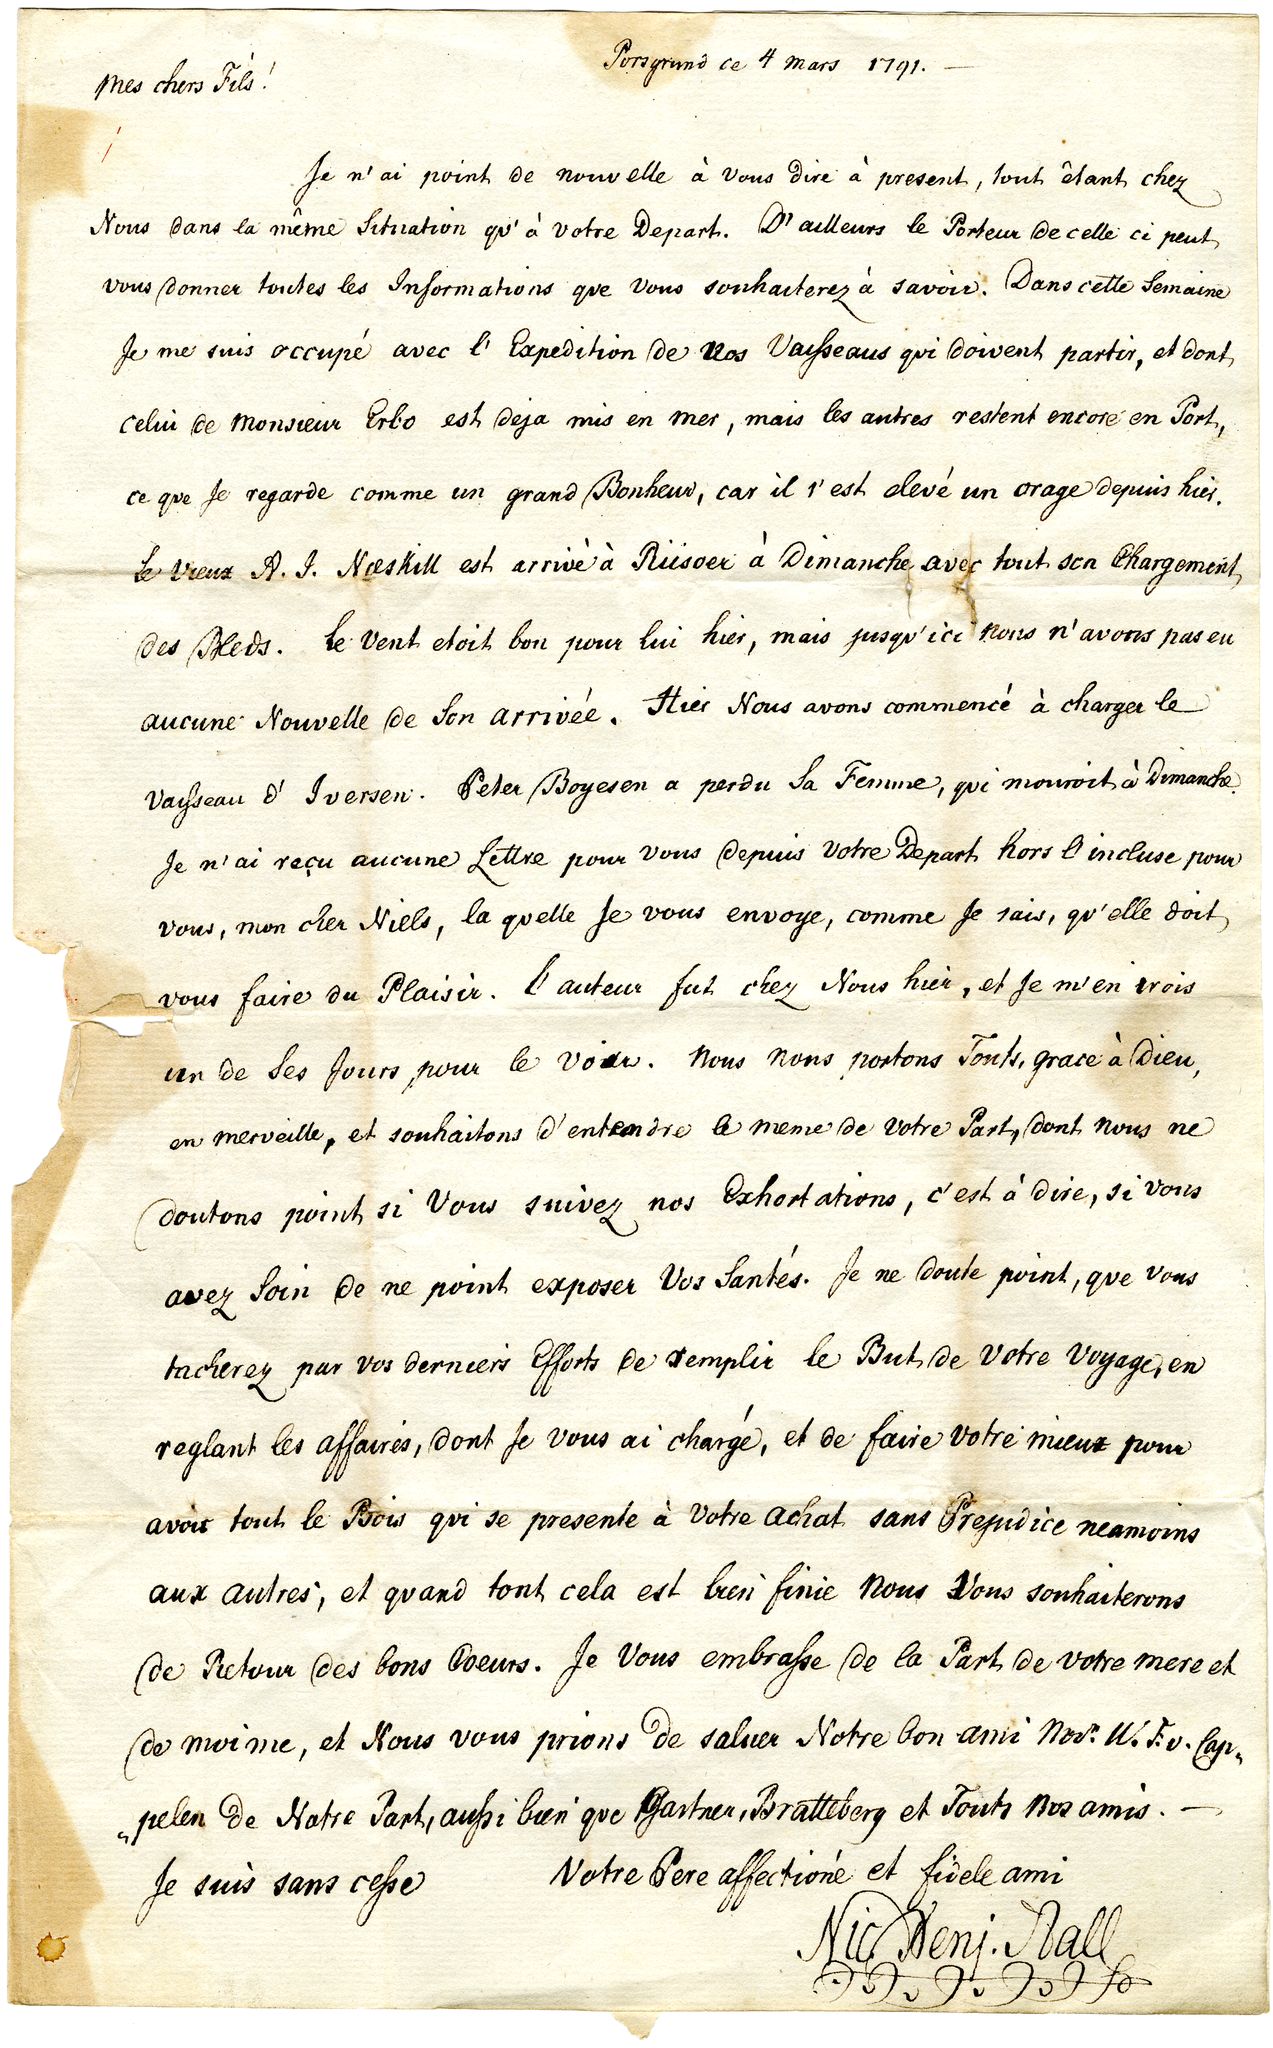 Porsgrund ce 4 mars 1791. —
Mes chers Fils!
Je n'ai point de nouvelle à vous dire à present, tout êtant chez
Nous dans la même Situation qu'à votre Depart. D'ailleurs le Porteur de celle ci peut
vous donner toutes les Informations que vous souhaiterez à savoir. Dans cette Semaine
Je me suis occupé avec l'Expedition de nos Vaisseaus qui doivent partir, et dont
celui de Monsieur Erbo est deja mis en mer, mais les autres restent encore en Port,
ce que Je regarde comme un grand Bonheur, car il s'est elevé un orage depuis hier.
Le vieux A. J. Næskill est arrivé à Riisoer à Dimanche avec tout son Chargement
des Bleds. Le vent etoit bon pour lui hier, mais jusqu'ici nous n'avons pas eu
aucune Nouvelle de son arrivée. Hier Nous avons commencé à charger le
Vaisseau d'Iversen. Peter Boyesen a perdu sa Femme, qui mouroit à Dimanche.
Je n'ai reçu aucune Lettre pour vous depuis votre Depart hors l'incluse pour
vous, mon cher Niels, la quelle Je vous envoye, comme Je sais, qu'elle doit
vous faire du Plaisir. L'auteur fut chez Nous hier, et Je m'en irois
un de ses Jours pour le voir. Nous nous portons Touts, grace à Dieu,
en merveille, et souhaitons d'entendre le meme de votre Part, dont nous ne
doutons point si Vous suivez nos Exhortations, c'est à dire, si vous
avez Soin de ne point exposer Vos Santés. Je ne doute point, que vous
tacherez par vos derniers Efforts de remplir le But de votre voyage, en
reglant les affaires, dont Je vous ai chargé, et de faire votre mieux pour
avoir tout le Bois qui se presente à votre achat sans Prejudice neamoins
aux autres, et quand tout cela est bien finie Nous Vous souhaiterons
de Retour des bons Coeurs. Je Vous embrasse de la Part de votre mere et
de moi me, et Nous vous prions de saluer Notre bon ami W. F. v. Cap„
„pelen de Notre Part, aussi bien que Gartner, Bratteberg et Touts nos amis. —
Je suis sans cesse Votre Pere affectioné et fidele ami
Nic Benj. Aall